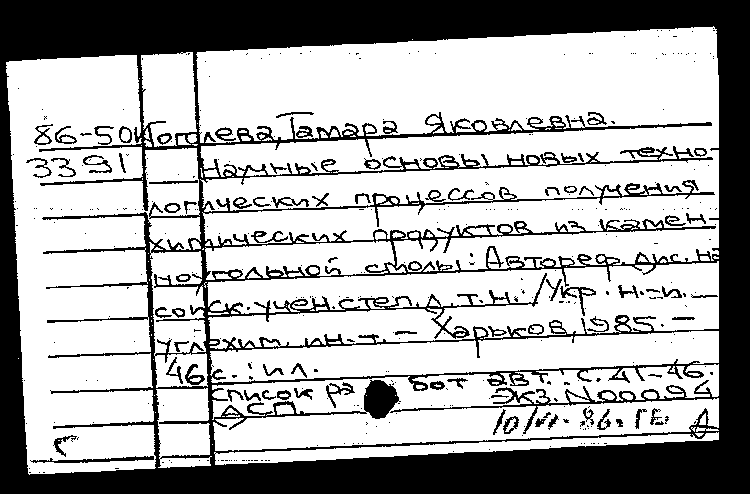 86-50к Гоголева, Тамара Яковлевна.
3391 Научные основы новых техно-
логических процессов получения
химических продуктов из камен-
ноугольной смолы: Автореф. дис. на
соиск. учен. степ. д.т.н. / Укр. н.-и.
углехим. ин-т. – Харьков, 1985. –
46 с. : ил.
Список ра бот авт.: с. 41-46.
ДСП. Экз. N00094
86. ГЕ.